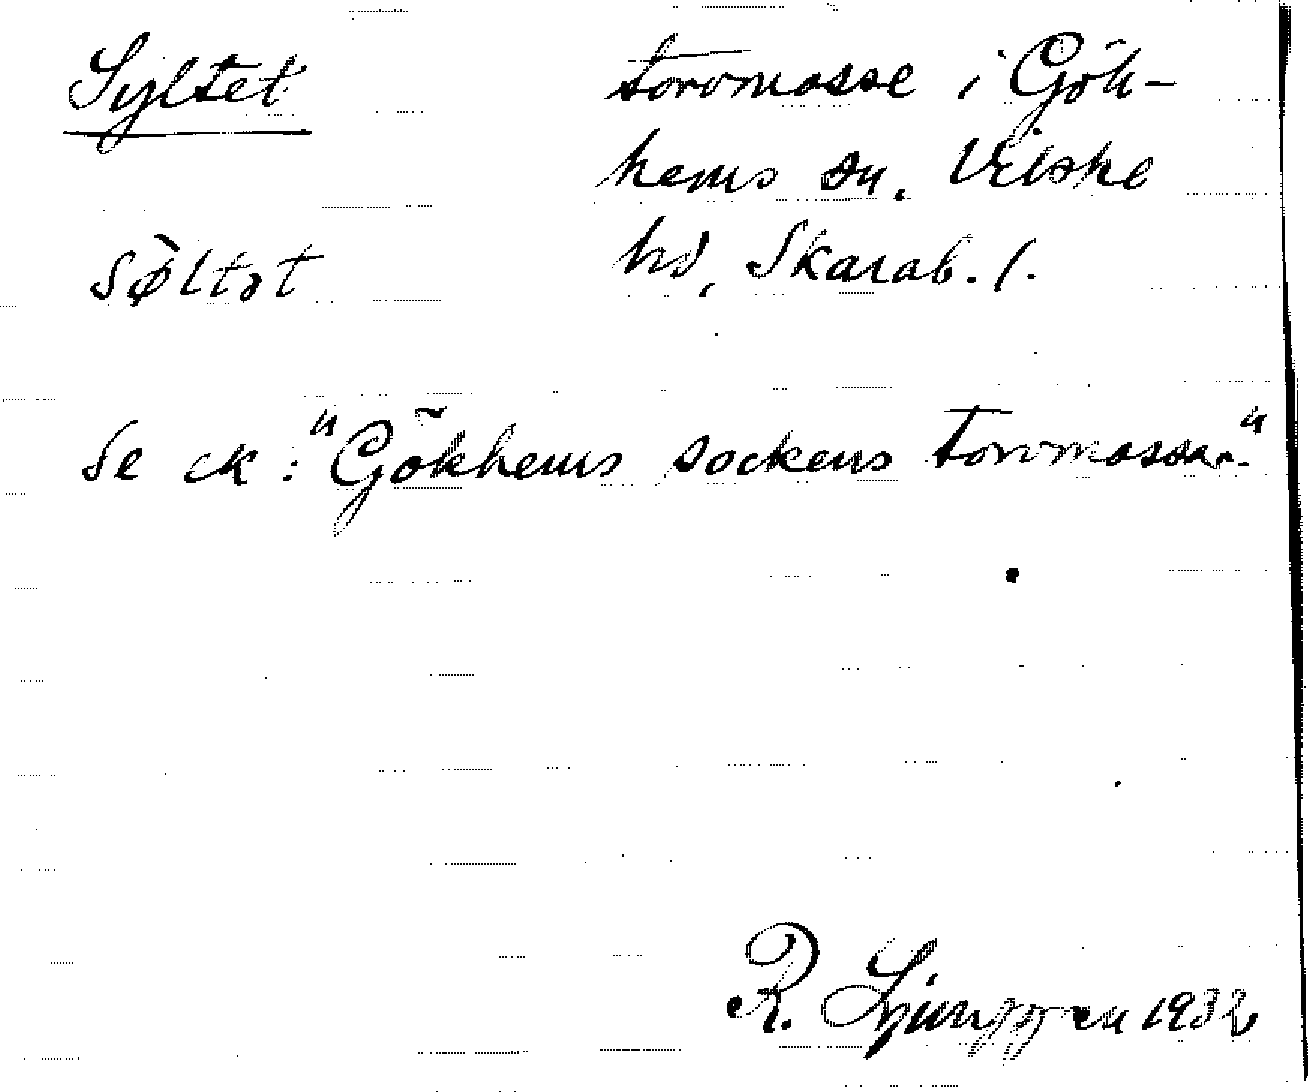 Syltet
torvmosse i Gök-
hems sn. Vilske
hd, Skarab. l.
sø̀ltət
Se ck: "Gökhems sockens torvmossar."
R. Ljunggren 1932